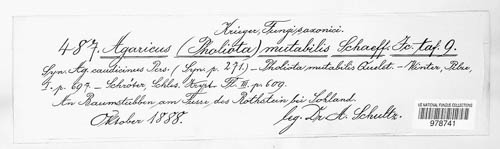 Krieger, Fungi saxonici.
487. Agaricus (Pholiota) mutabilis Schaeff. Ic. taf. 9.
Syn. Ag. caudicinus Pers. (Syn. p. 271.) – Pholiota mutabilis Quelet. – Winter, Pilze,
I. p. 697. – Schröter, Schles. Krypt. Fl. III. p. 609.
An Baumstubben am Fusse des Rothstein bei Sohland.
Oktober 1888. leg. Dr. A. Schultz.
US NATIONAL FUNGUS COLLECTIONS
978741